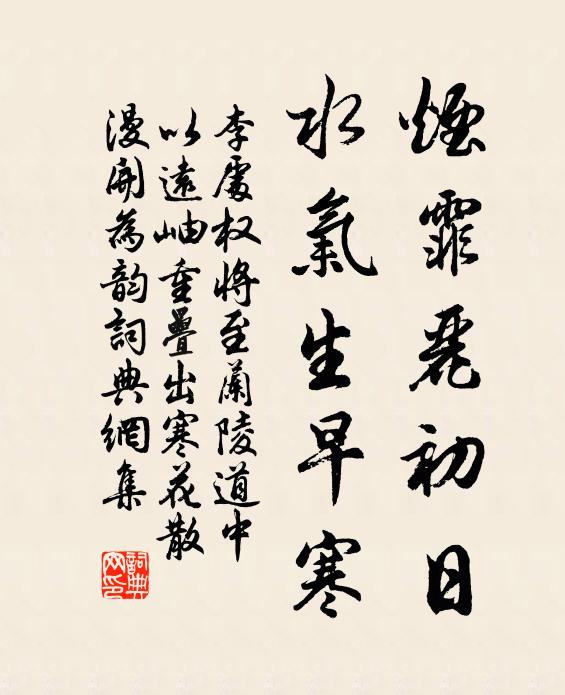 煙霏麗初日
水氣生早寒
李處权將至蘭陵道中
以遠岫重疊出寒花散
漫開為韵詞典網集
詞典網印